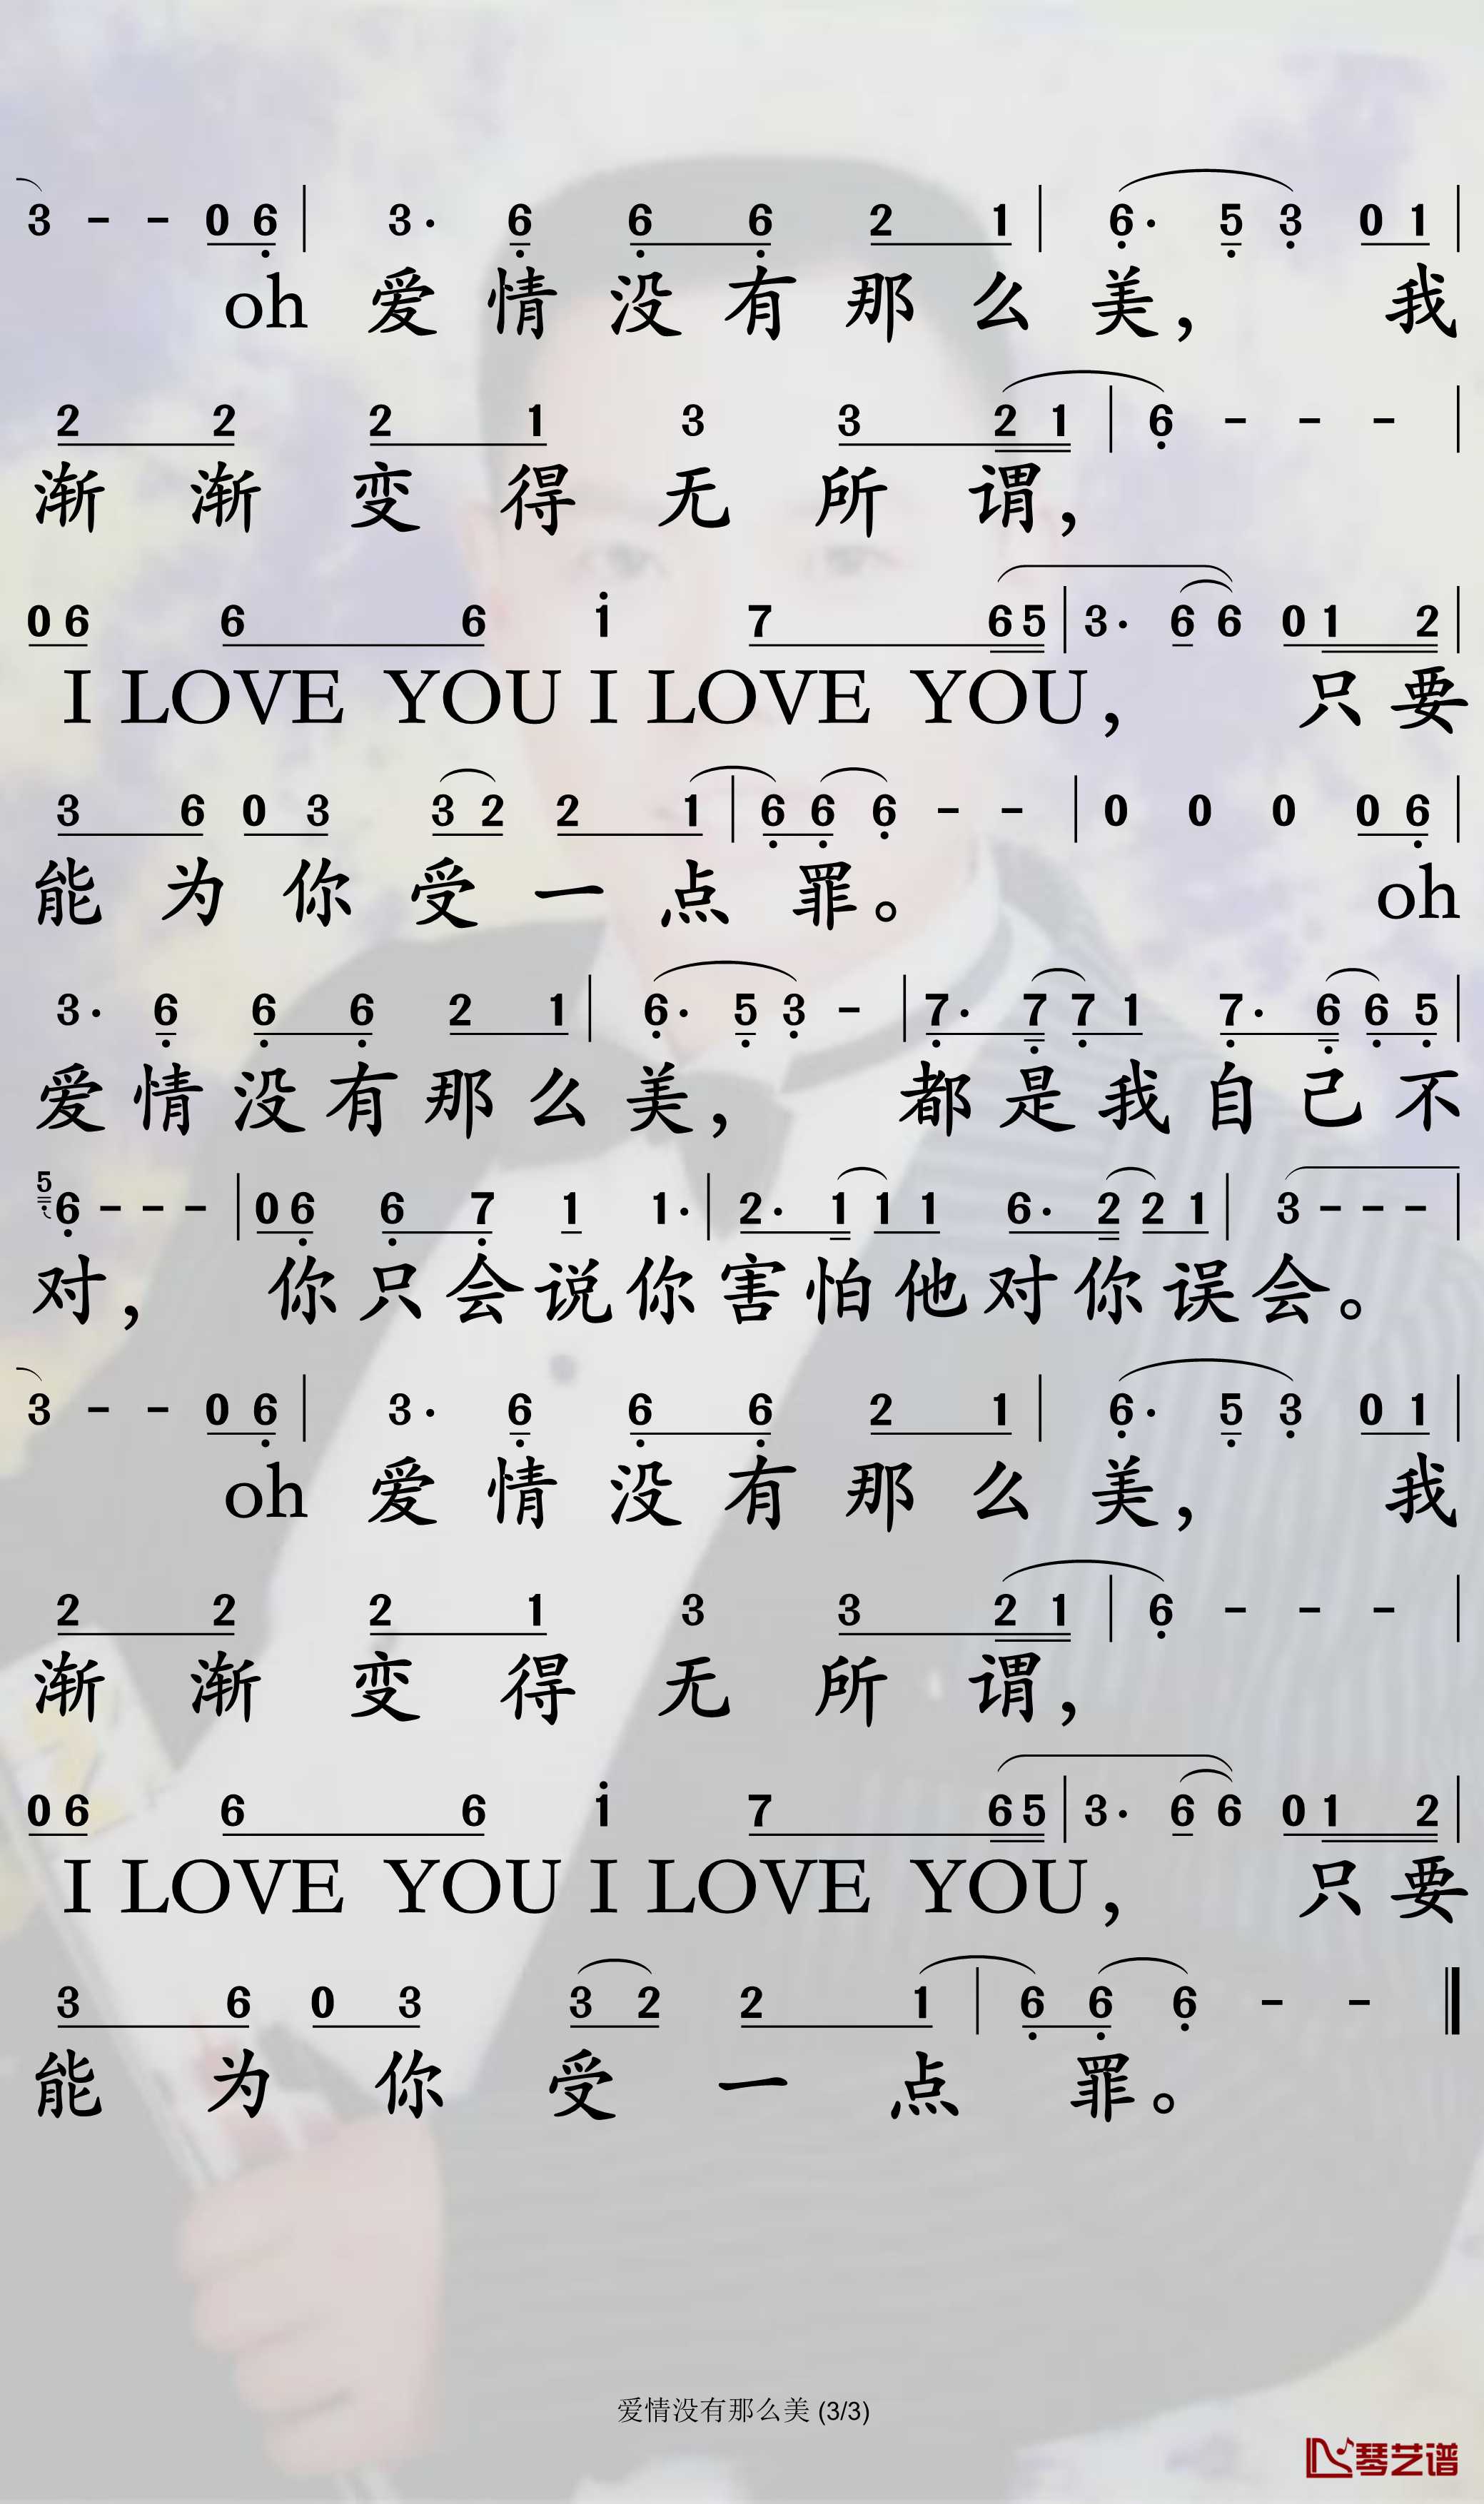 3 - - 0 6 | 3· 6 6 6 2 1 | 6· 5 3 0 1 |
oh 爱情没有那么美， 我
2 2 2 1 3 3 2 1 | 6 - - - |
渐渐变得无所谓，
0 6 6 6 i 7 6 5 | 3· 6 6 0 1 2 |
I LOVE YOU I LOVE YOU， 只要
3 6 0 3 3 2 2 1 | 6 6 6 - - | 0 0 0 0 6 |
能为你受一点罪。 oh
3· 6 6 6 2 1 | 6· 5 3 - | 7· 7 7 1 7· 6 6 5 |
爱情没有那么美， 都是我自己不
5 6 - - - | 0 6 6 7 1 1· | 2· 1 1 1 6· 2 2 1 | 3 - - - |
对， 你只会说你害怕他对你误会。
3 - - 0 6 | 3· 6 6 6 2 1 | 6· 5 3 0 1 |
oh 爱情没有那么美， 我
2 2 2 1 3 3 2 1 | 6 - - - |
渐渐变得无所谓，
0 6 6 6 i 7 6 5 | 3· 6 6 0 1 2 |
I LOVE YOU I LOVE YOU， 只要
3 6 0 3 3 2 2 1 | 6 6 6 - - ‖
能为你受一点罪。
爱情没有那么美 (3/3)
琴艺谱